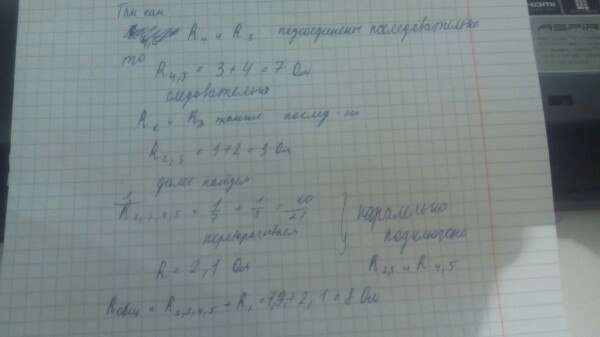 Так как
R₄ и R₅ подсоединены последовательно
то
R₄,₅ = 3+4 = 7 Ом
следовательно
R₂ и R₃ также послед-но
R₂,₃ = 1+2 = 3 Ом
далее найдем
1/R₂,₃,₄,₅ = 1/7 + 1/3 = 10/21
переворачиваем
R = 2,1 Ом
паралельно
подключено
R₂,₃ и R₄,₅
Rобщ = R₂,₃,₄,₅ + R₁ = 2,1 = 8 Ом
HDMI
ASPIR